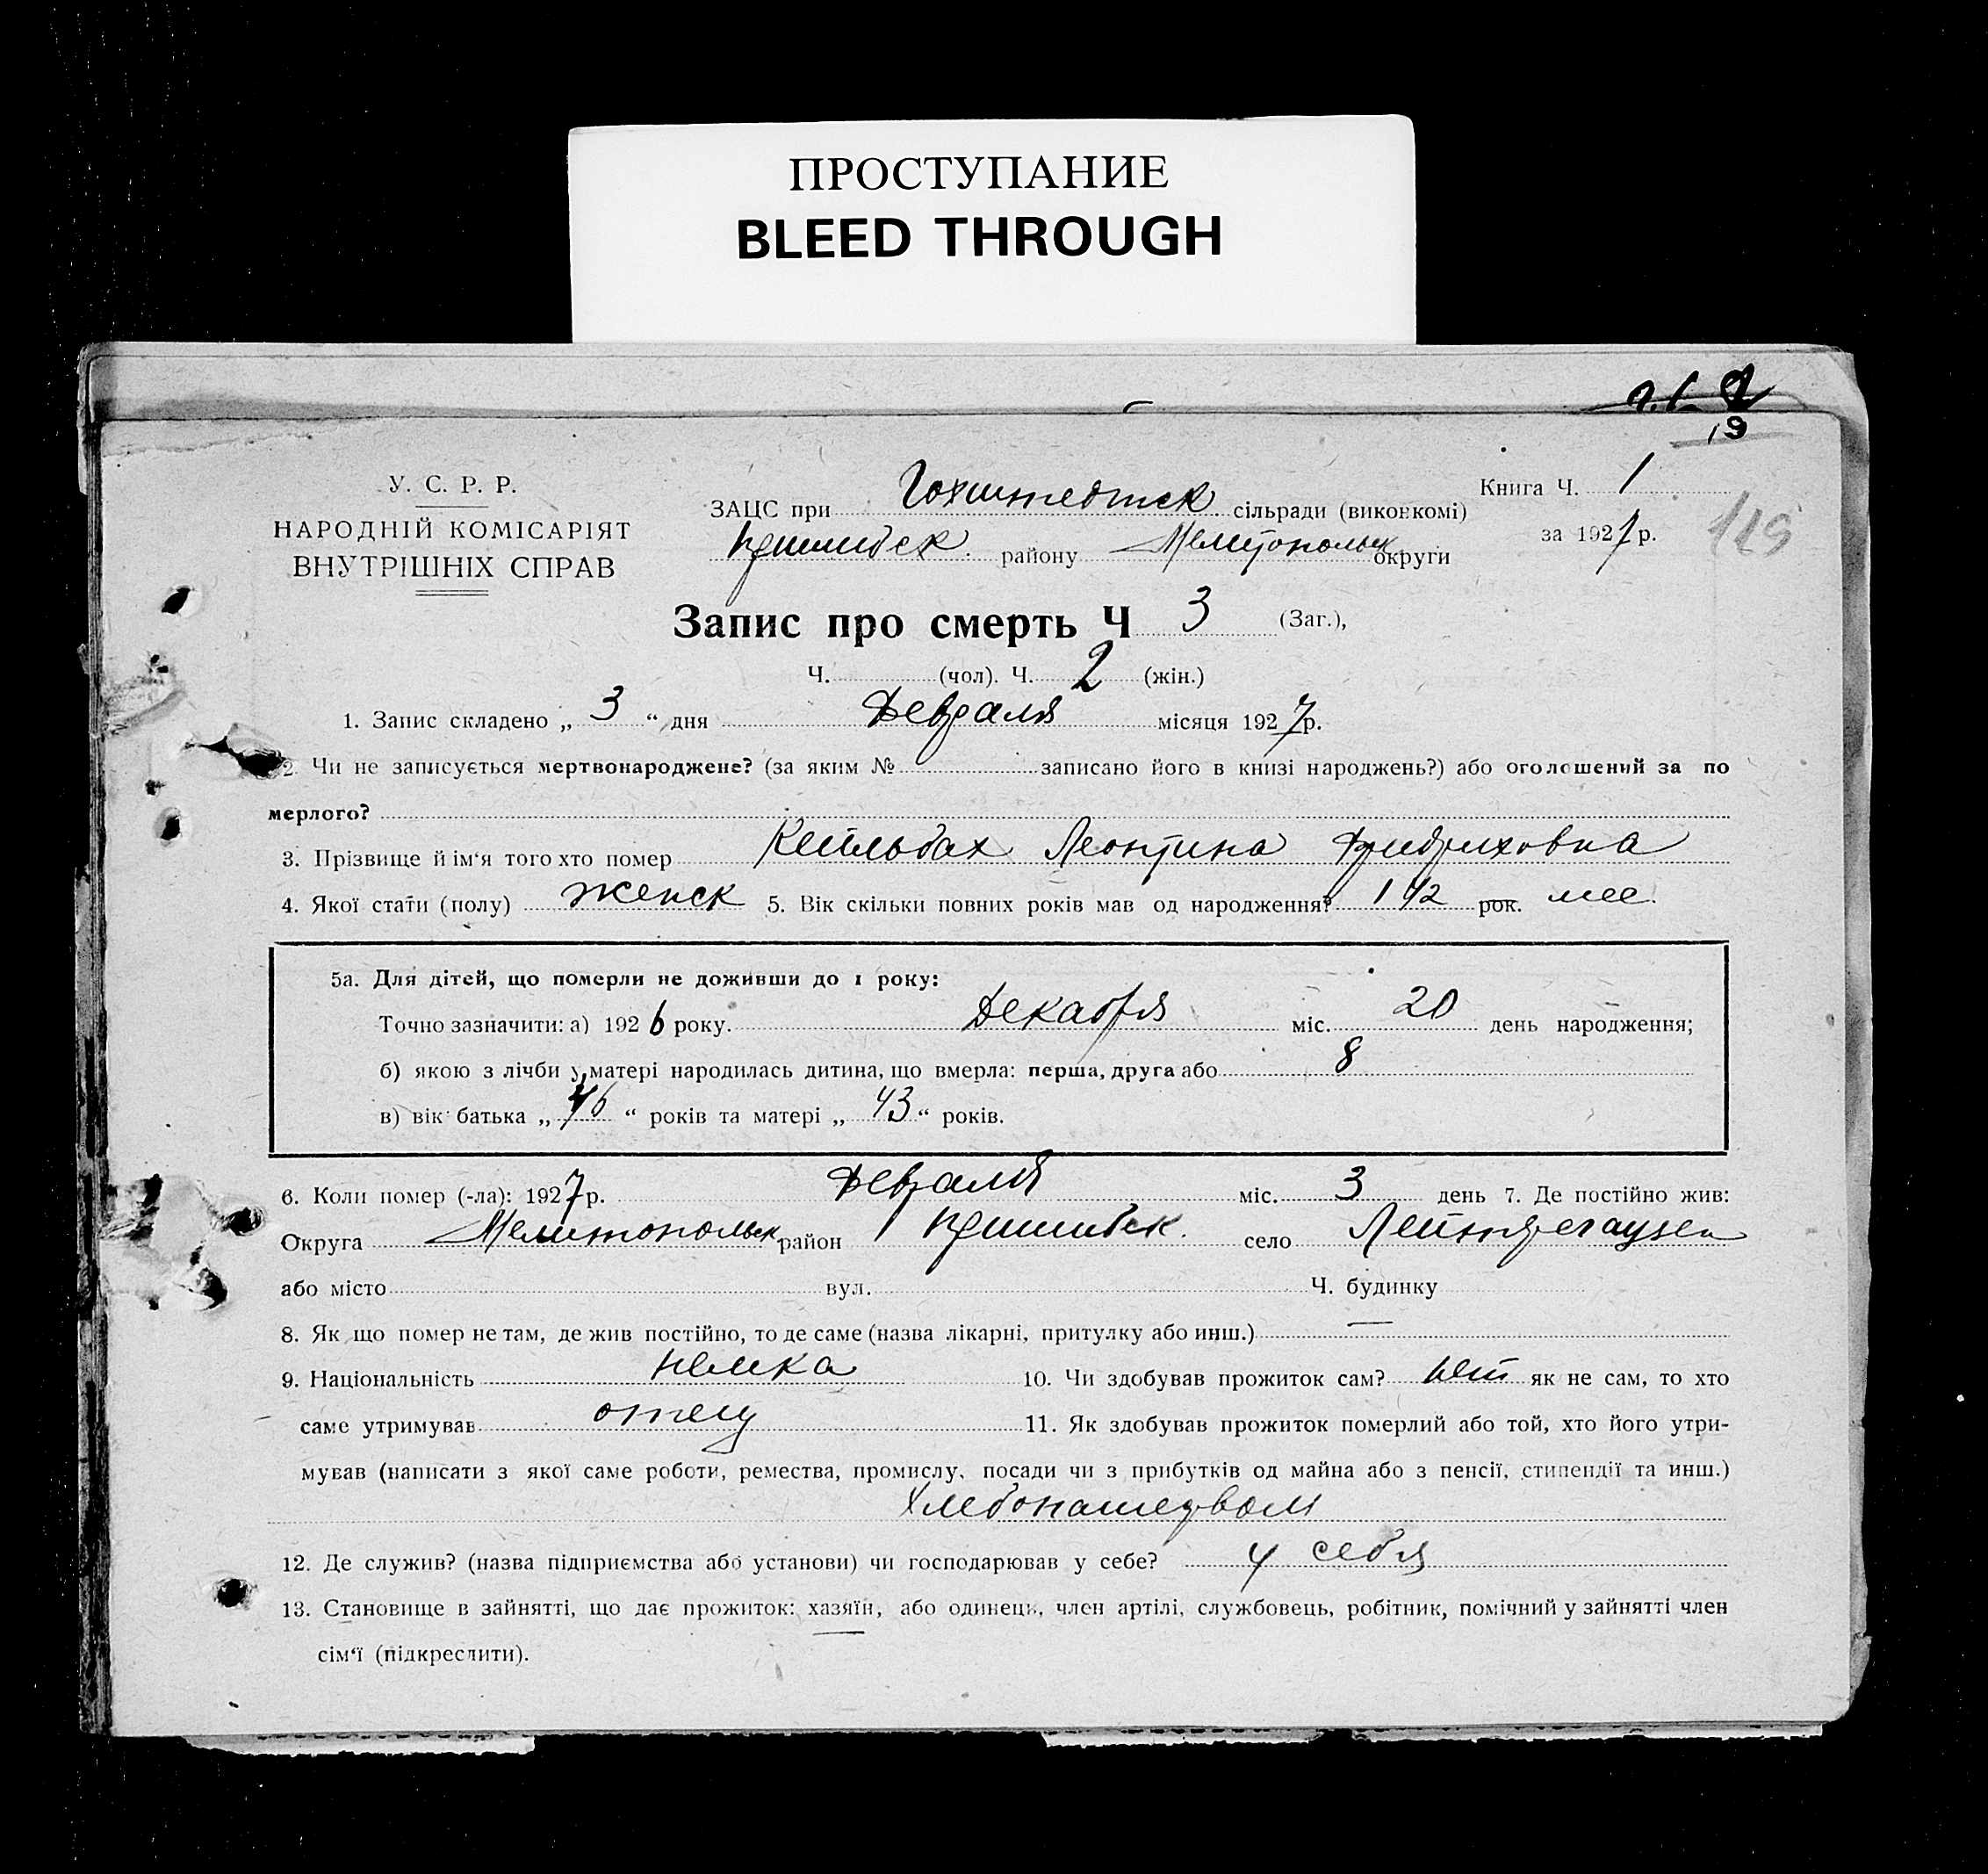 ПРОСТУПАНИЕ
BLEED THROUGH
19
У. С. Р. Р.
НАРОДНІЙ КОМІСАРІЯТ
ВНУТРІШНІХ СПРАВ
ЗАЦС при Гохштедтск сільради (виконкомі)
Пришибск. району Мелитопольск округи
Книга Ч. 1
за 1927 р.
Запис про смерть Ч 3 (Заг.),
Ч. (чол). Ч. 2 (жін.)
1. Запис складено „ 3 “ дня Февраля місяця 1927 р.
2. Чи не записується мертвонароджене? (за яким № записано його в книзі народжень?) або оголошений за по
мерлого?
3. Прізвище й ім‘я того хто помер Кейльбах Леонтина Фридриховна
4. Якої стати (полу) женск 5. Вік скільки повних років мав од народження? 1 1/2 рок. мес.
5а. Для дітей, що померли не доживши до 1 року:
Точно зазначити: а) 1926 року. Декабря міс. 20 день народження;
б) якою з лічби у матері народилась дитина, що вмерла: перша, друга або 8
в) вік батька „ 46 “ років та матері „ 43 “ років.
6. Коли помер (-ла): 1927 р. Февраля міс. 3 день 7. Де постійно жив:
Округа Мелитопольск район Пришибск. село Лейтергаузен
або місто вул. Ч. будинку
8. Як що помер не там, де жив постійно, то де саме (назва лікарні, притулку або инш.) —
9. Національність немка 10. Чи здобував прожиток сам? нет як не сам, то хто
саме утримував отец 11. Як здобував прожиток померлий або той, хто його утри-
мував (написати з якої саме роботи, ремества, промислу, посади чи з прибутків од майна або з пенсії, стипендії та инш.)
Хлебопашеством
12. Де служив? (назва підприємства або установи) чи господарював у себе? у себя
13. Становище в зайнятті, що дає прожиток: хазяїн, або одинець, член артілі, службовець, робітник, помічний у зайнятті член
сім‘ї (підкреслити).